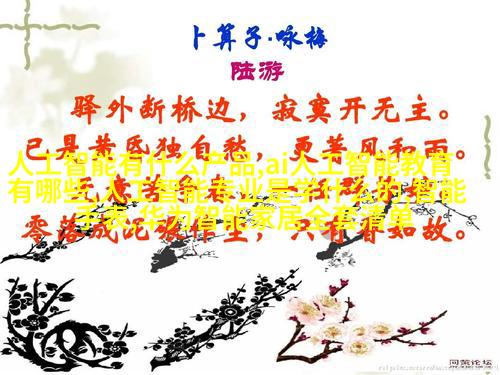 卜算子·咏梅
陆游
驿外断桥边，寂寞开无主。
已是黄昏独自愁，更著风和雨。
人工智能有什么产品,ai人工智能教育
有哪些,人工智能专业是学什么的,智能
手表,华为智能家居全套清单
零落成泥碾作尘，只有香如故。